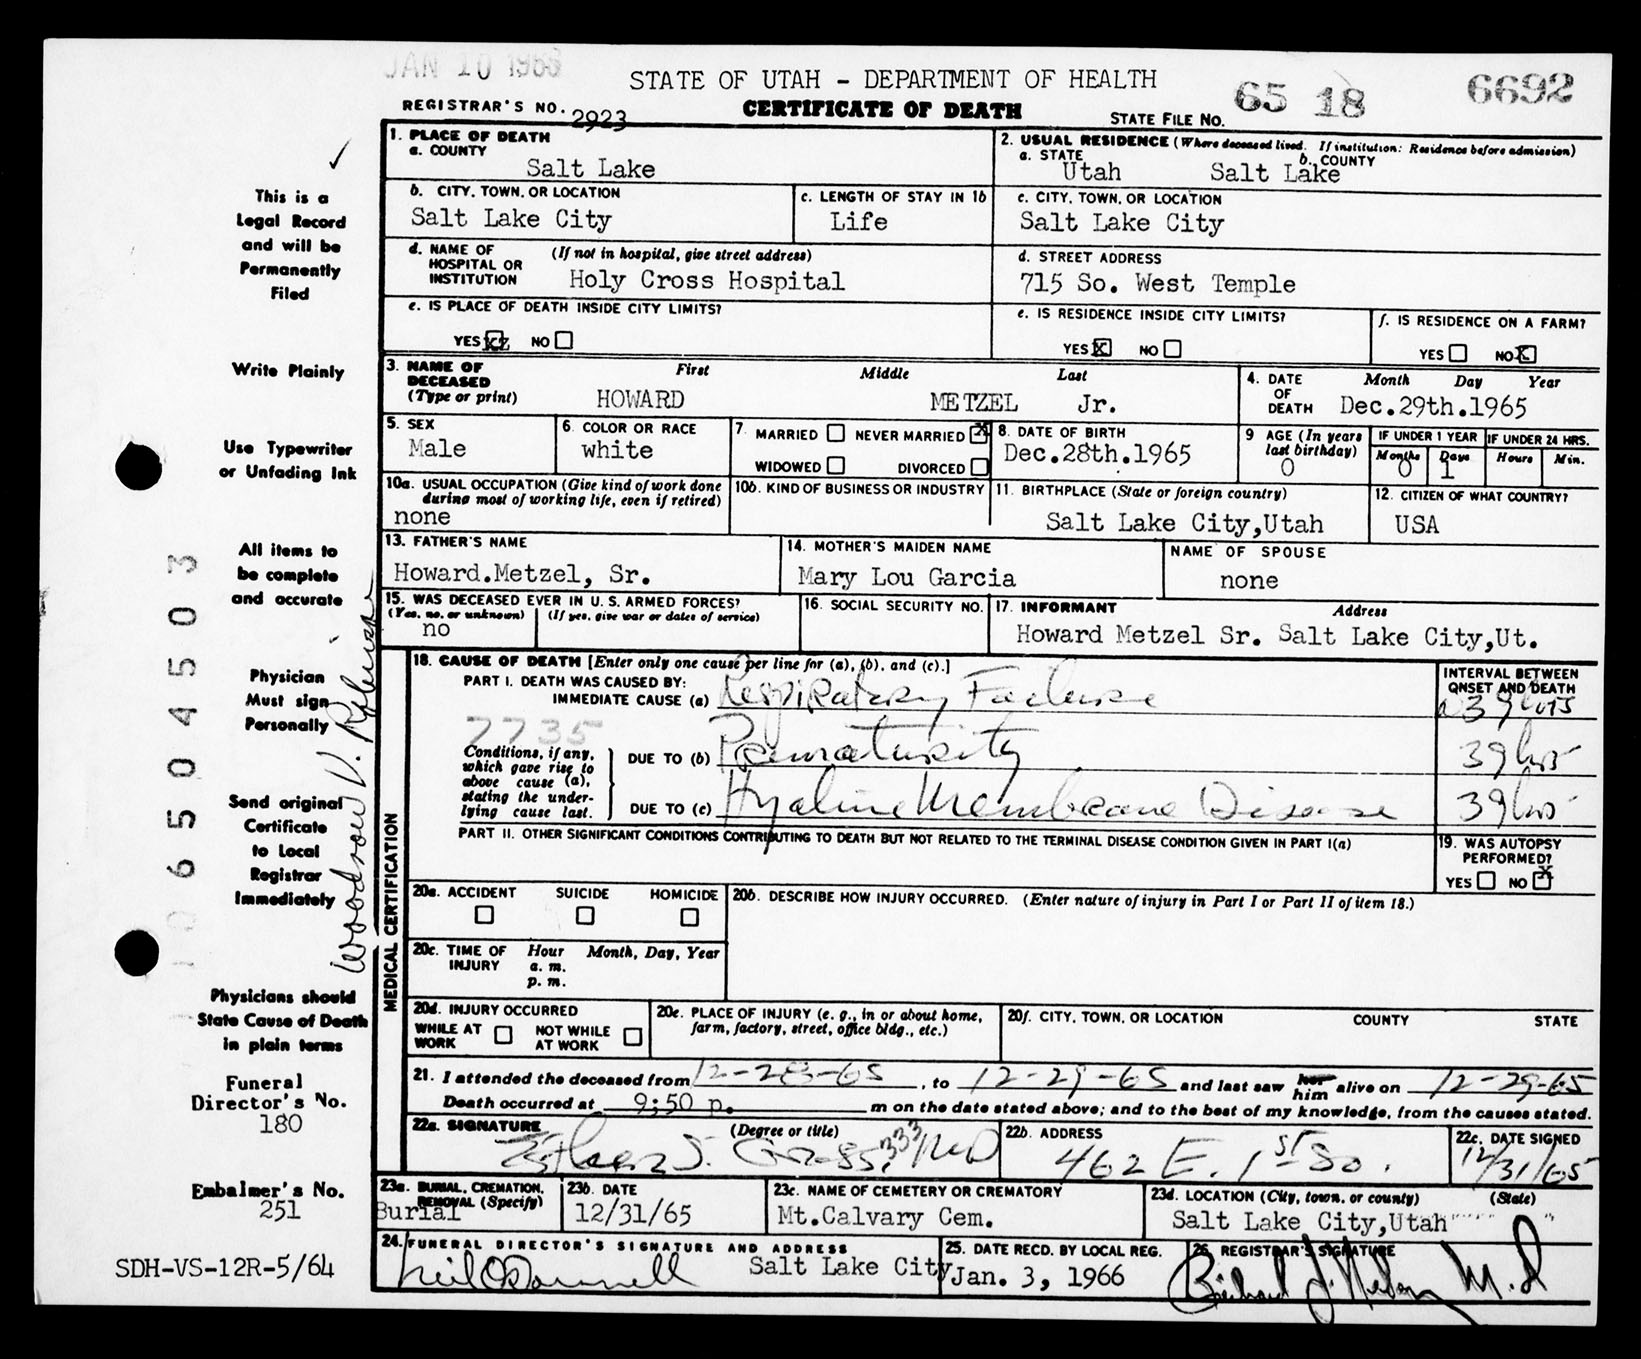 JAN 10 1966
STATE OF UTAH - DEPARTMENT OF HEALTH
REGISTRAR'S NO. 2923
CERTIFICATE OF DEATH
STATE FILE NO. 65 18 6692
This is a
Legal Record
and will be
Permanently
Filed
Write Plainly
Use Typewriter
or Unfading Ink
All items to
be complete
and accurate
Physician
Must sign
Personally
Send original
Certificate
to Local
Registrar
Immediately
Physicians should
State Cause of Death
in plain terms
Funeral
Director's No.
180
Embalmer's No.
251
SDH-VS-12R-5/64
650 4503
Woodrow V. Robinson
1. PLACE OF DEATH
a. COUNTY
Salt Lake
2. USUAL RESIDENCE (Where deceased lived. If institution: Residence before admission)
a. STATE b. COUNTY
Utah Salt Lake
b. CITY, TOWN, OR LOCATION
Salt Lake City
c. LENGTH OF STAY IN 1b
Life
c. CITY, TOWN, OR LOCATION
Salt Lake City
d. NAME OF HOSPITAL OR INSTITUTION (If not in hospital, give street address)
Holy Cross Hospital
d. STREET ADDRESS
715 So. West Temple
e. IS PLACE OF DEATH INSIDE CITY LIMITS?
YES XX NO
e. IS RESIDENCE INSIDE CITY LIMITS?
YES X NO
f. IS RESIDENCE ON A FARM?
YES NO X
3. NAME OF DECEASED (Type or print) First Middle Last
HOWARD METZEL Jr.
4. DATE OF DEATH Month Day Year
Dec.29th.1965
5. SEX
Male
6. COLOR OR RACE
white
7. MARRIED NEVER MARRIED X
WIDOWED DIVORCED
8. DATE OF BIRTH
Dec.28th.1965
9 AGE (In years last birthday)
0
IF UNDER 1 YEAR
Months Days
0 1
IF UNDER 24 HRS.
Hours Min.
10a. USUAL OCCUPATION (Give kind of work done during most of working life, even if retired)
none
10b. KIND OF BUSINESS OR INDUSTRY
11. BIRTHPLACE (State or foreign country)
Salt Lake City,Utah
12. CITIZEN OF WHAT COUNTRY?
USA
13. FATHER'S NAME
Howard.Metzel, Sr.
14. MOTHER'S MAIDEN NAME
Mary Lou Garcia
NAME OF SPOUSE
none
15. WAS DECEASED EVER IN U.S. ARMED FORCES?
(Yes, no, or unknown) (If yes, give war or dates of service)
no
16. SOCIAL SECURITY NO.
17. INFORMANT Address
Howard Metzel Sr. Salt Lake City,Ut.
MEDICAL CERTIFICATION
18. CAUSE OF DEATH [Enter only one cause per line for (a), (b), and (c).]
INTERVAL BETWEEN ONSET AND DEATH
PART I. DEATH WAS CAUSED BY:
IMMEDIATE CAUSE (a) Respiratory Failure 39 hrs
7735
Conditions, if any, which gave rise to above cause (a), stating the underlying cause last.
DUE TO (b) Prematurity 39 hrs
DUE TO (c) Hyaline Membrane Disease 39 hrs
PART II. OTHER SIGNIFICANT CONDITIONS CONTRIBUTING TO DEATH BUT NOT RELATED TO THE TERMINAL DISEASE CONDITION GIVEN IN PART I(a)
19. WAS AUTOPSY PERFORMED?
YES NO X
20a. ACCIDENT SUICIDE HOMICIDE
20b. DESCRIBE HOW INJURY OCCURRED. (Enter nature of injury in Part I or Part II of item 18.)
20c. TIME OF INJURY Hour Month, Day, Year
a. m.
p. m.
20d. INJURY OCCURRED
WHILE AT WORK NOT WHILE AT WORK
20e. PLACE OF INJURY (e. g., in or about home, farm, factory, street, office bldg., etc.)
20f. CITY, TOWN, OR LOCATION COUNTY STATE
21. I attended the deceased from 12-28-65, to 12-29-65 and last saw her him alive on 12-29-65
Death occurred at 9:50 p. m on the date stated above; and to the best of my knowledge, from the causes stated.
22a. SIGNATURE (Degree or title)
333 MD
22b. ADDRESS
462 E. 1st So.
22c. DATE SIGNED
12/31/65
23a. BURIAL, CREMATION, REMOVAL (Specify)
Burial
23b. DATE
12/31/65
23c. NAME OF CEMETERY OR CREMATORY
Mt.Calvary Cem.
23d. LOCATION (City, town, or county) (State)
Salt Lake City,Utah
24. FUNERAL DIRECTOR'S SIGNATURE AND ADDRESS
Neil O'Donnell Salt Lake City
25. DATE RECD. BY LOCAL REG.
Jan. 3, 1966
26. REGISTRAR'S SIGNATURE
M.D